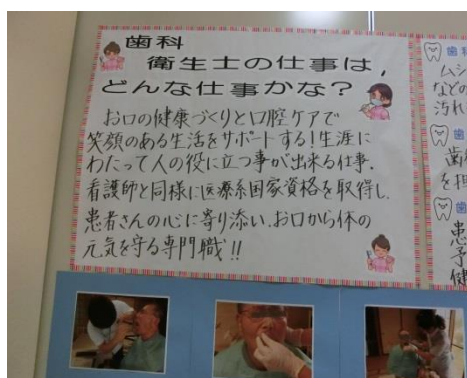 歯科
衛生士の仕事は,
どんな仕事かな?
お口の健康づくりと口腔ケアで
笑顔のある生活をサポートする!生涯に
わたって人の役に立つ事が出来る仕事.
看護師と同様に医療系国家資格を取得し.
患者さんの心に寄り添い.お口から体の
元気を守る専門職!!
歯
ムシ
などの
汚れ
歯
を担
患
予
健